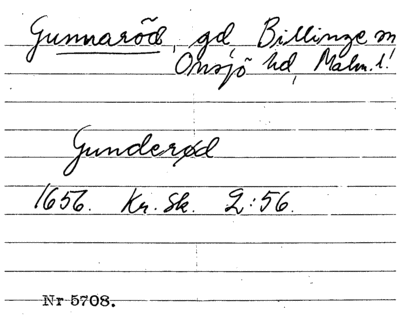 Gunnaröd, gd, Billinge sn,
Onsjö hd, Malm. l.
Gunderød
1656. Kr. Sk. 2:56.
Nr 5708.